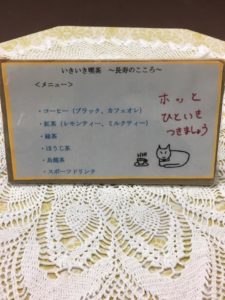 いきいき喫茶 ～長寿のこころ～
＜メニュー＞
・コーヒー（ブラック、カフェオレ）
・紅茶（レモンティー、ミルクティー）
・緑茶
・ほうじ茶
・烏龍茶
・スポーツドリンク
ホッと
ひといき
つきましょう